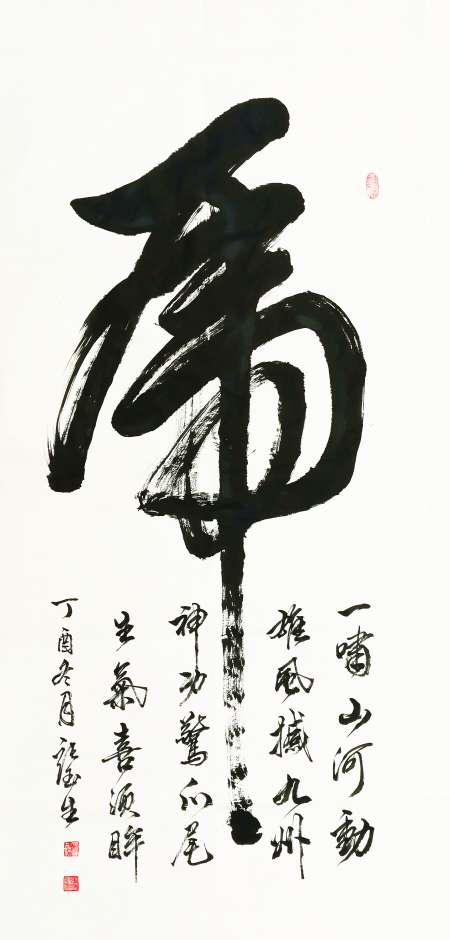 虎
一嘯山河動
雄風撼九州
神功驚爪尾
生氣喜須眸
丁酉冬月